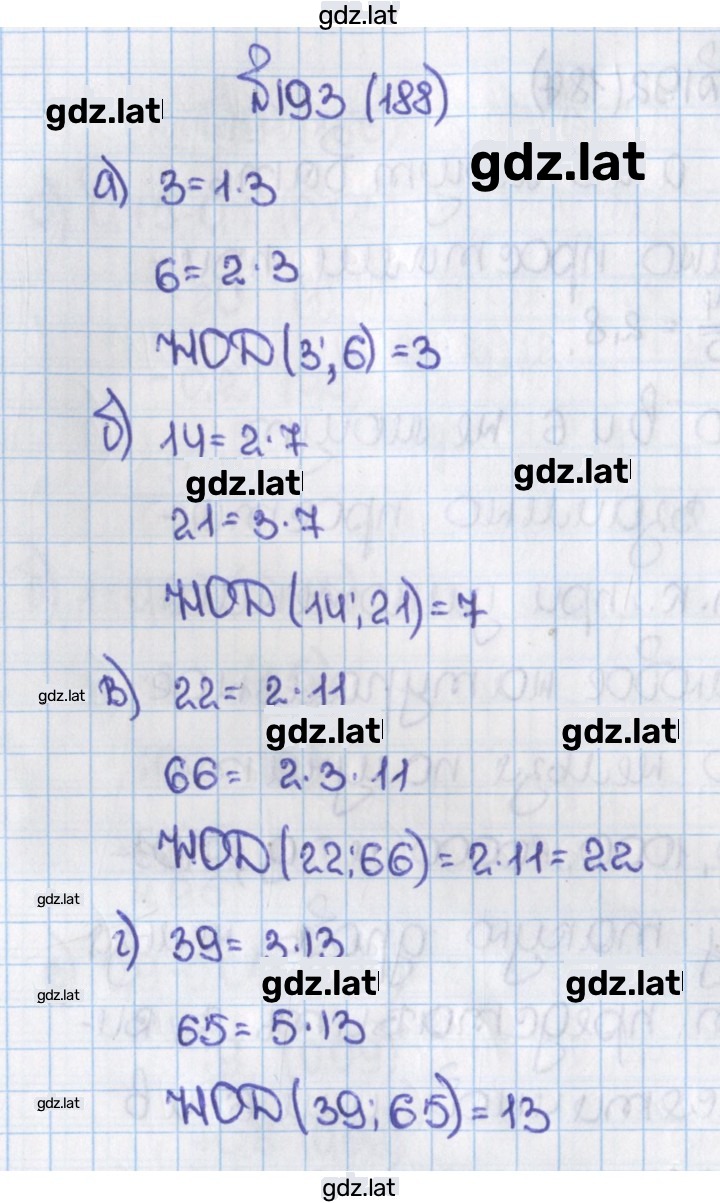 gdz.lat
№193 (188)
gdz.lat
gdz.lat
а) 3=1·3
6= 2·3
НОД(3;6)=3
б) 14= 2·7
gdz.lat
gdz.lat
21=3·7
НОД(14;21)=7
gdz.lat
в) 22= 2·11
gdz.lat
gdz.lat
66= 2·3·11
НОД(22;66)=2·11=22
gdz.lat
г) 39= 3·13
gdz.lat
gdz.lat
gdz.lat
65= 5·13
gdz.lat
НОД(39;65)=13
gdz.lat